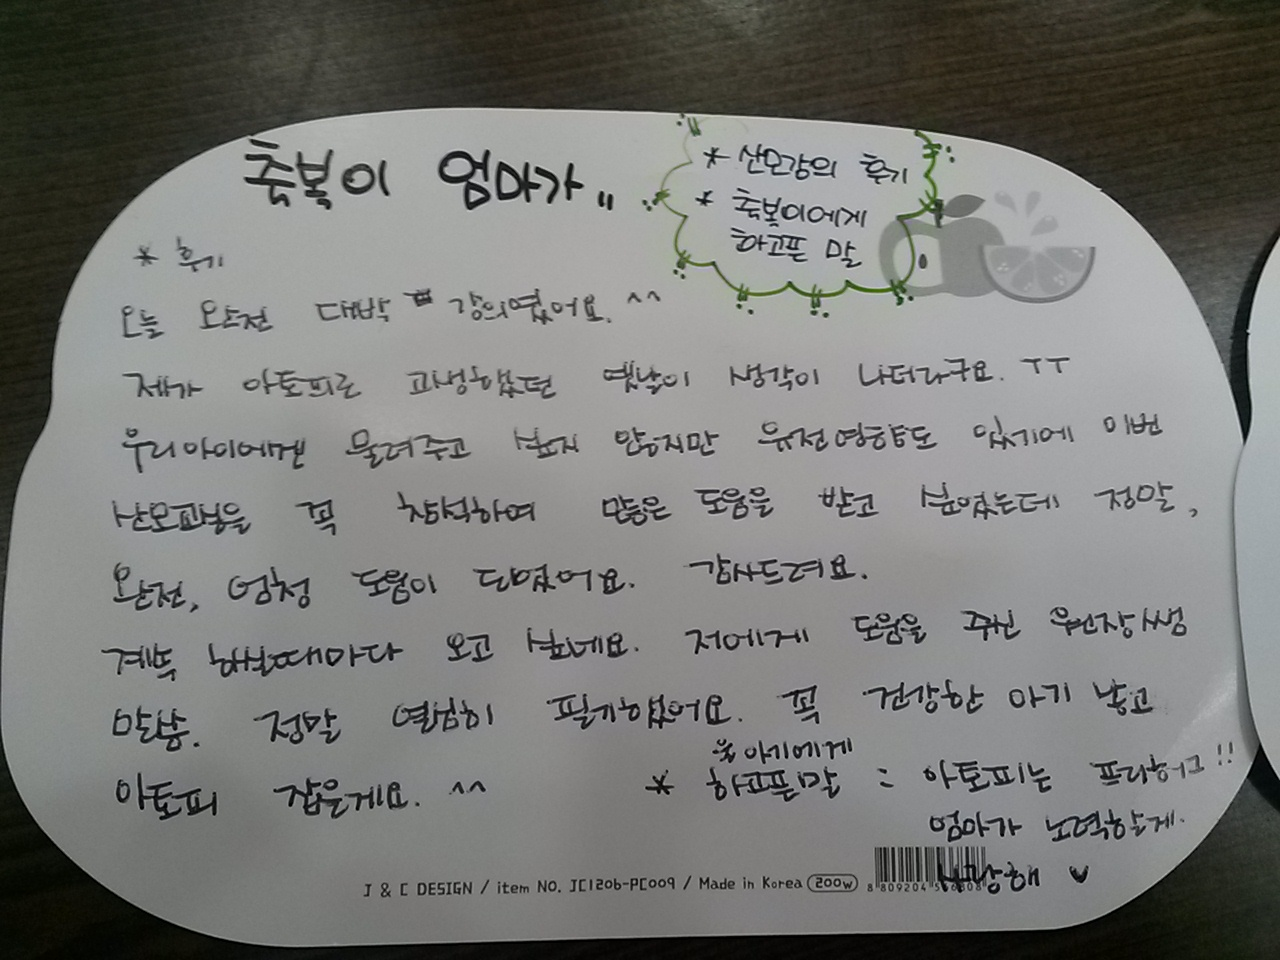 축복이 엄마가..
* 산모강의 후기
* 축복이에게
하고픈 말
* 후기
오늘 완전 대박 강의였어요. ^^
제가 아토피로 고생했던 옛날이 생각이 나더라구요. ㅜㅜ
우리아이에겐 물려주고 싶지 않지만 유전영향도 있기에 이번
산모교실을 꼭 참석하여 많은 도움을 받고 싶었는데 정말,
완전, 엄청 도움이 되었어요. 감사드려요.
계속 하실때마다 오고 싶네요. 저에게 도움을 주신 원장쌤
말씀. 정말 열심히 필기하였어요. 꼭 건강한 아기 낳고
아토피 잡을게요. ^^
울 아기에게
* 하고픈말 : 아토피는 프리하 !!
엄마가 노력할게.
사랑해 ♥
J & C DESIGN / item NO. JC1206-PC009 / Made in Korea 200w
8 809204